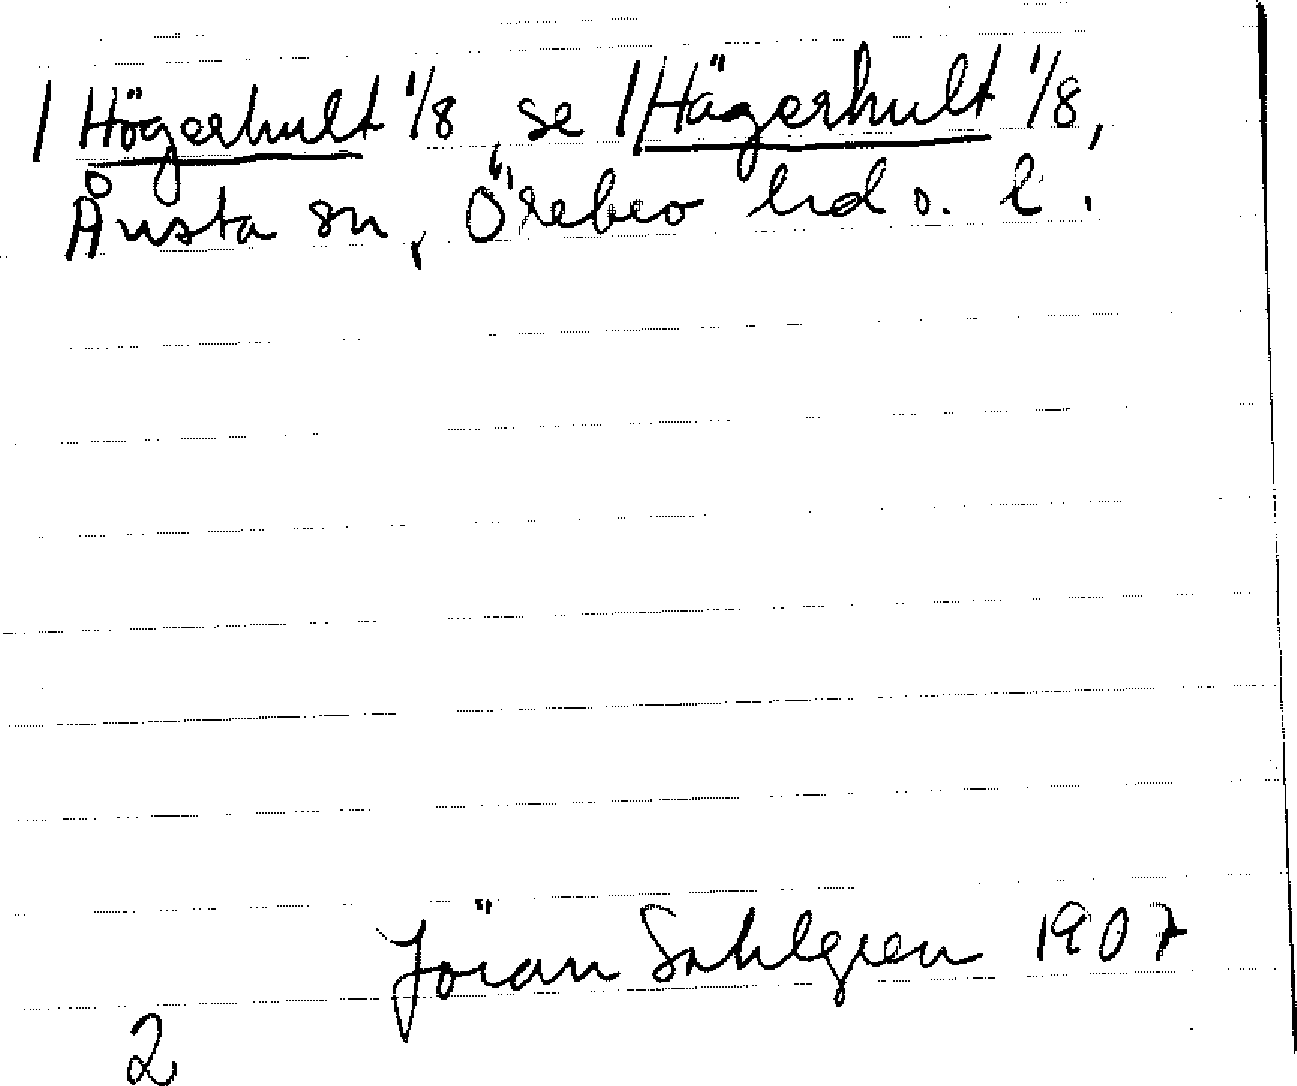 / Högerhult 1/8 se / Hägerhult 1/8,
Ånsta sn, Örebro hd o. l.
Jöran Sahlgren 1907
2